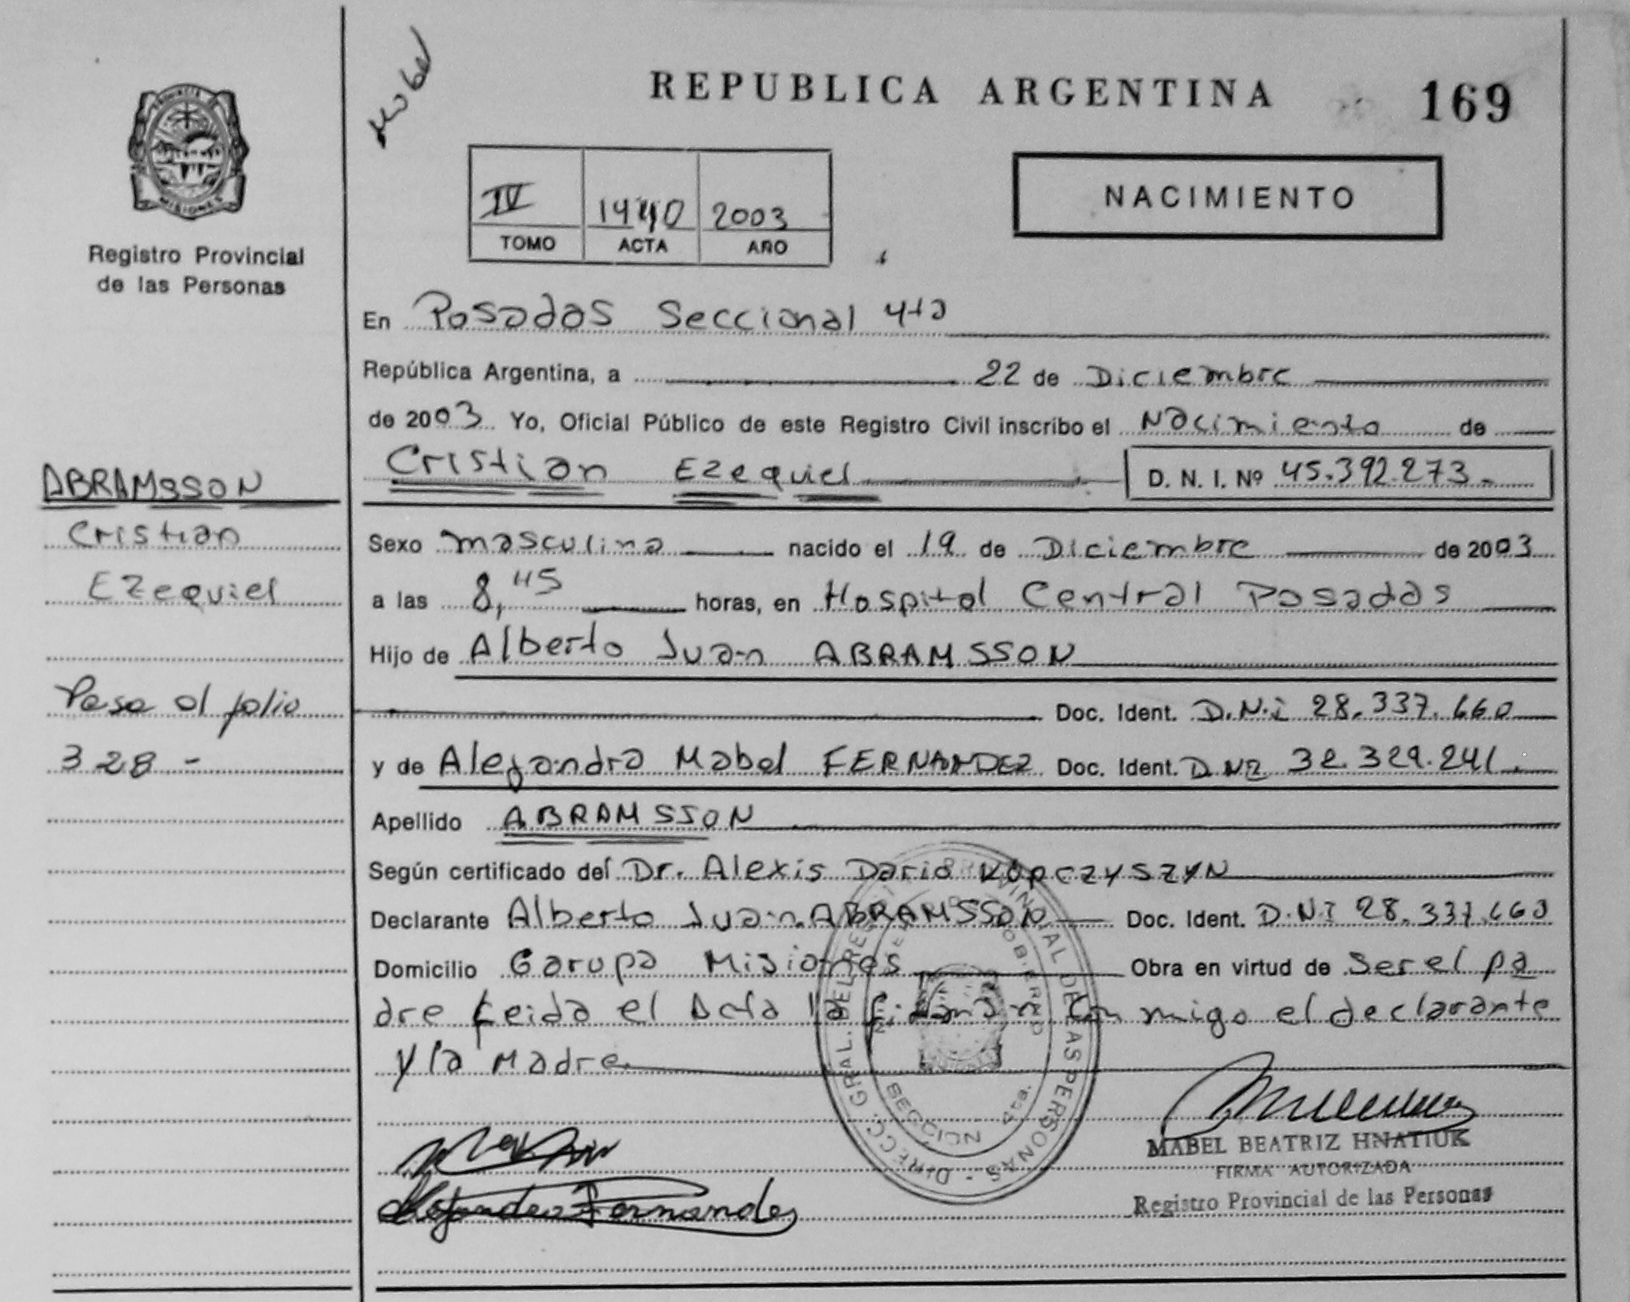 Mabel
REPUBLICA ARGENTINA
169
PROVINCIA DE
MISIONES
Registro Provincial
de las Personas
IV 1440 2003
TOMO ACTA AÑO
NACIMIENTO
En Posadas Seccional 4ta
República Argentina, a 22 de Diciembre
de 2003. Yo, Oficial Público de este Registro Civil inscribo el Nacimiento de
Cristian Ezequiel D. N. I. Nº 45.392.273.-
ABRAMSSON
Cristian
Ezequiel
Pasa al folio
328 -
Sexo masculino nacido el 19 de Diciembre de 2003
a las 8,45 horas, en Hospital Central Posadas
Hijo de Alberto Juan ABRAMSSON
Doc. Ident. D.N.i 28.337.660
y de Alejandra Mabel FERNANDEZ Doc. Ident. D.NI 32.329.241.
Apellido ABRAMSSON
Según certificado del Dr. Alexis Dario KOPCZYSZYN
Declarante Alberto Juan ABRAMSSON Doc. Ident. D.N.I 28.337.660
Domicilio Garupa Misiones Obra en virtud de Ser el pa
dre Leida el Acta la firman conmigo el declarante
y la Madre
DIRECC. GRAL. DEL REGIST. PROVINCIAL DE LAS PERSONAS -
SECCION 4ta.
Alejandra Fernandez
MABEL BEATRIZ HNATIUK
FIRMA AUTORIZADA
Registro Provincial de las Personas